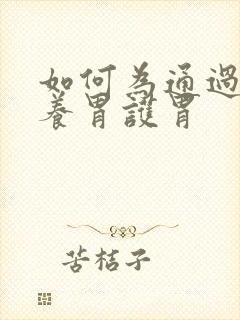 如何為通過
養胃護胃
苦桔子